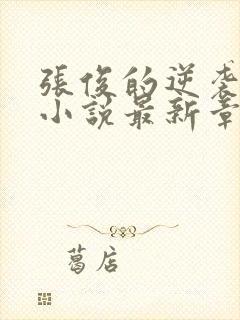 張俊的逆袭
小說最新章
葛店